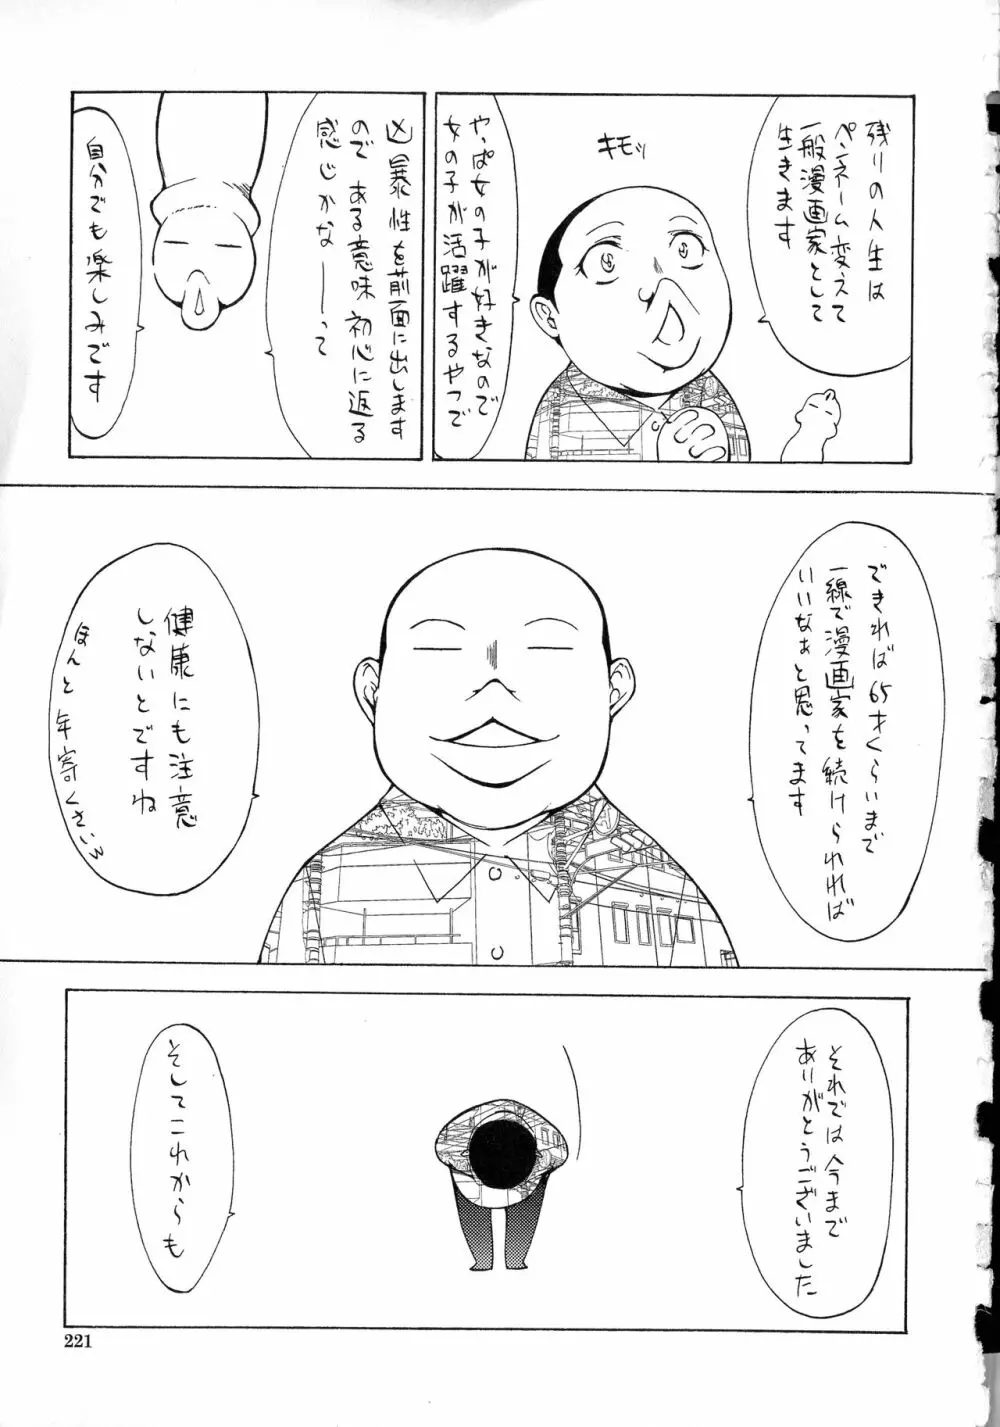 残りの人生は
ペンネーム変えて
一般漫画家として
生きます
キモッ
やっぱ女の子が好きなので
女の子が活躍するやつで
凶暴性を前面に出します
ので ある意味 初心に返る
感じかな――って
自分でも楽しみです
できれば65才くらいまで
一線で漫画家を続けられれば
いいなぁと思ってます
健康にも注意
しないとですね
ほんと年寄くさいろ
それでは今まで
ありがとうございました
そしてこれからも
221